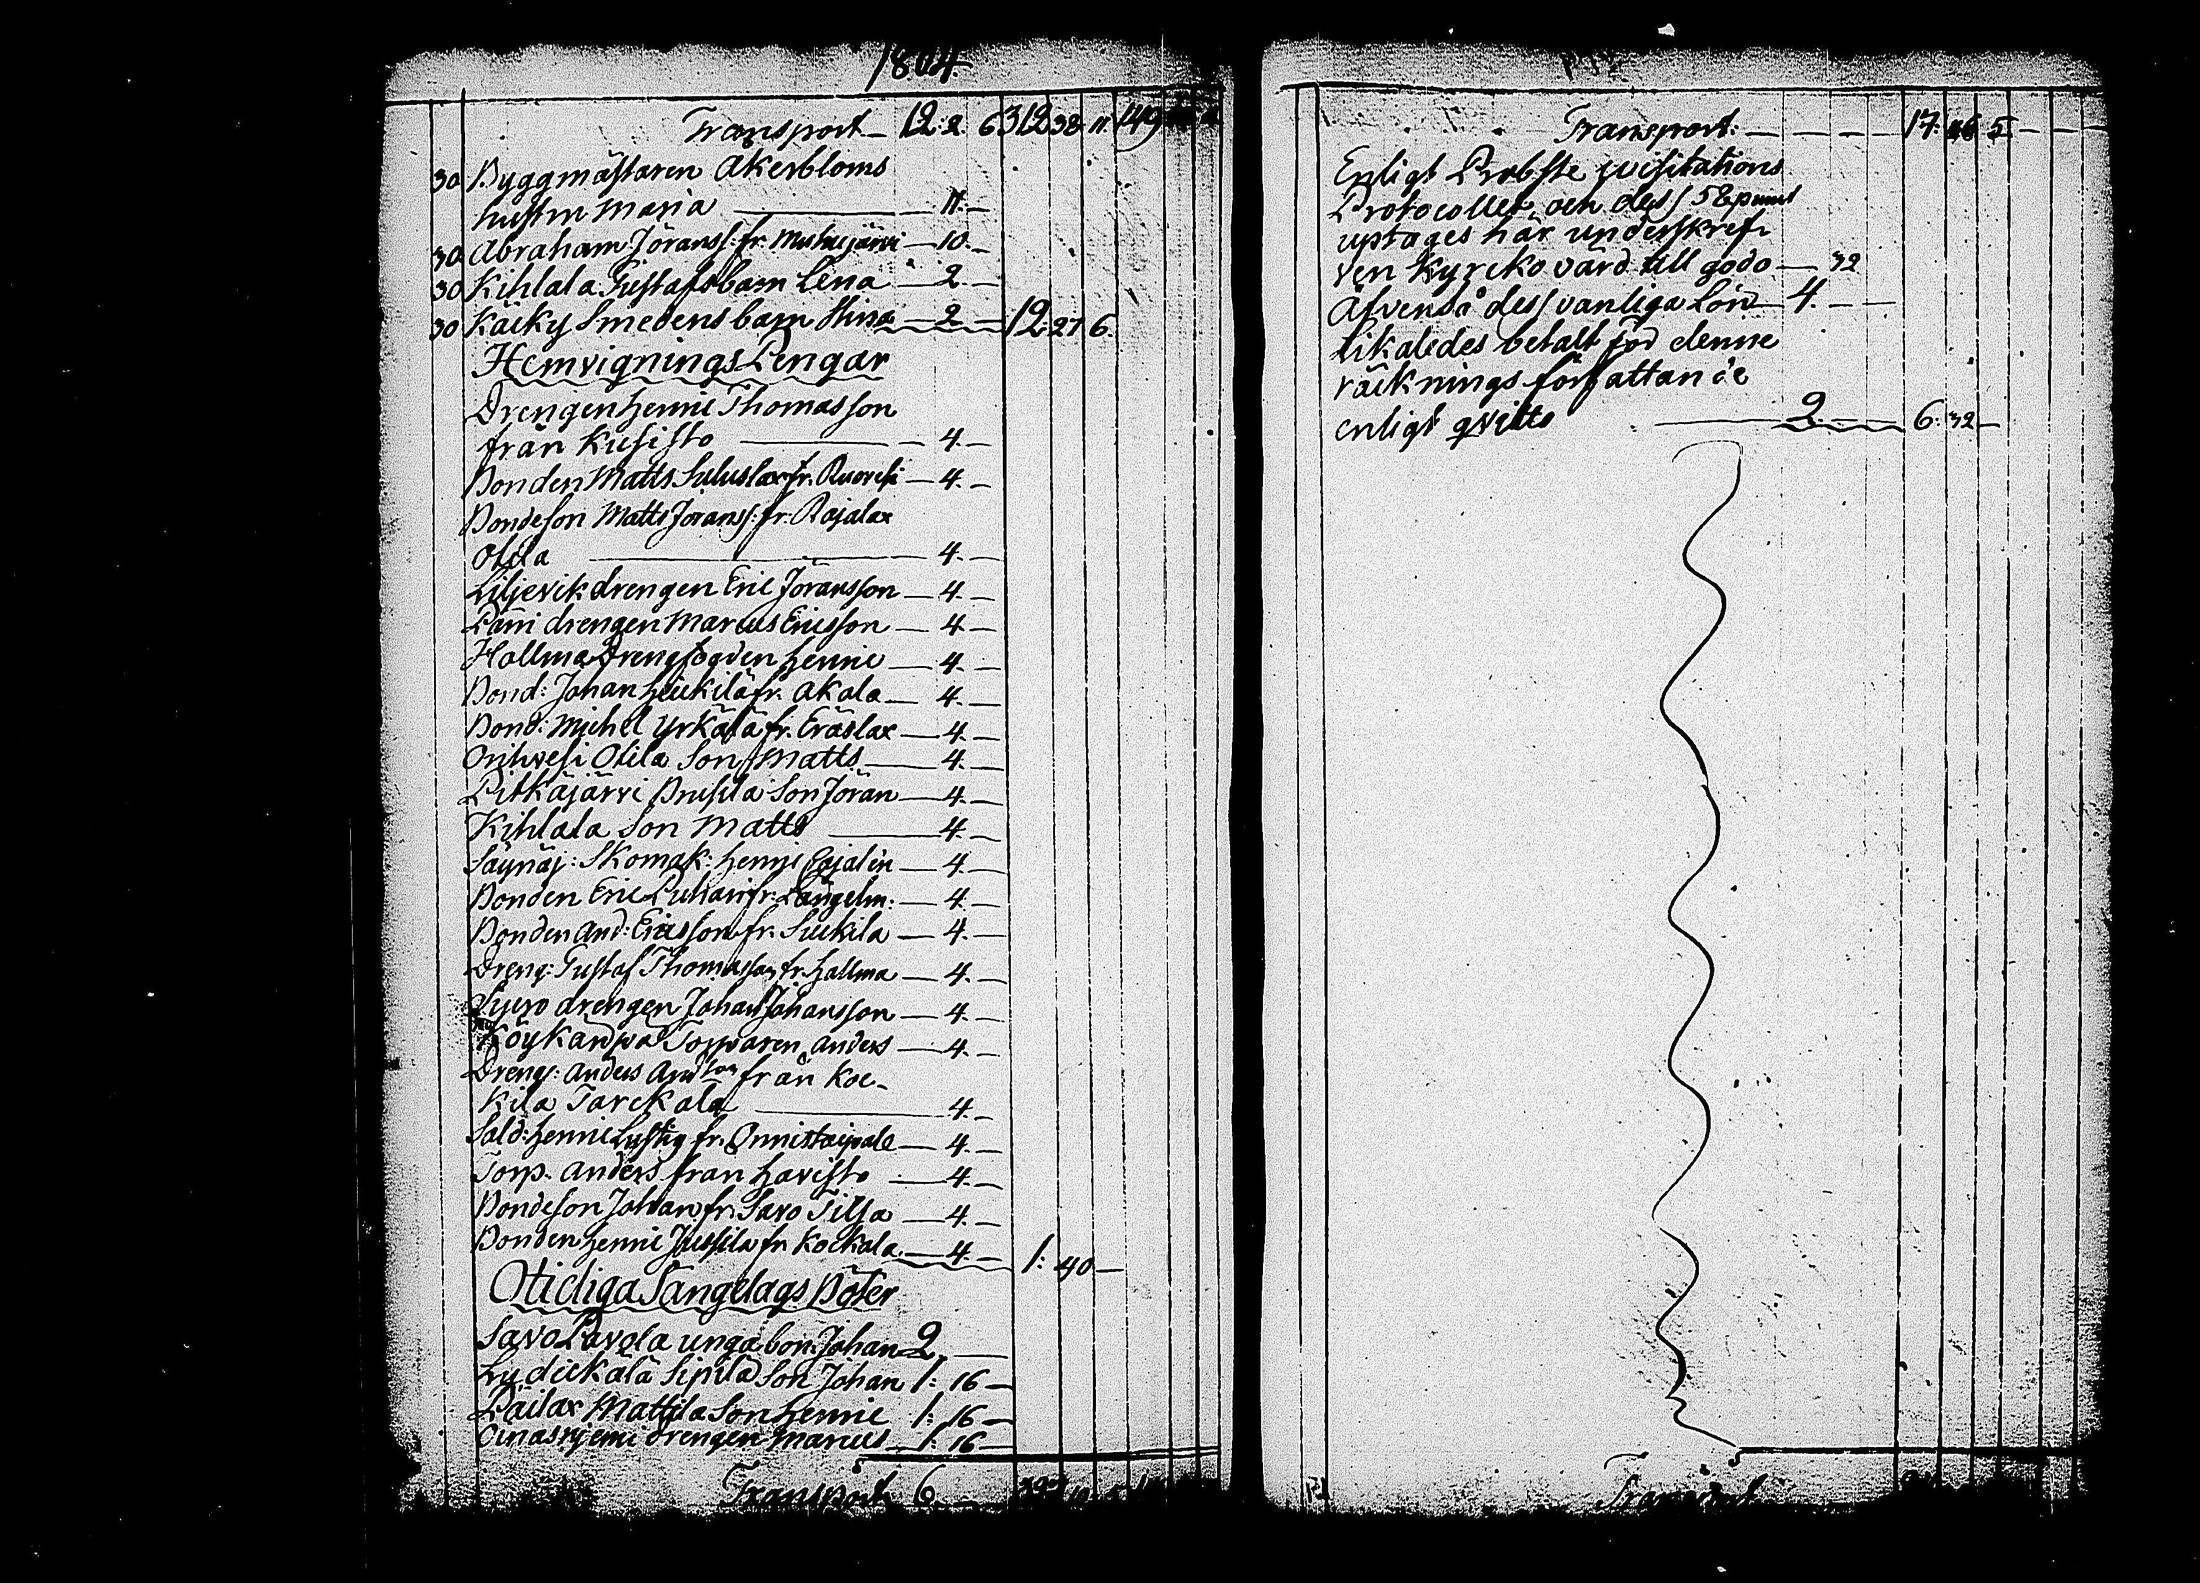 1804
Transport 12. 2. 6 312 38. 11. 149
30 Byggmästaren Akerbloms
hustru Maria — 11. —
30 Abraham Jöranss: fr. — 10. —
30 Kihlala Gustafs barn Lena — 2. —
30 Käcky Smedens barn Stina — 2 — 12. 27 6.
Hemvignings Pengar
Drengen Henric Thomasson
från Kusisto — 4. —
Bonden Matts fr. Ruovesi — 4. —
Bondeson Matts Jöranss: fr. Rajalax
Olila — 4. —
Liljevik drengen Eric Jöransson — 4. —
Päri drengen Marcus Ericsson — 4. —
Hallma Drengfogden Henric — 4. —
Bond: Johan Heickilä fr. Akala — 4. —
Bond: Michel Yrkälä fr. Eräslax — 4. —
Orihvesi Olila Son Matts — 4. —
Pitkäjärvi Prusila Son Jöran — 4. —
Kihlala Son Matts — 4. —
Säynäj: Skomak: Henric — 4. —
Bonden Eric fr. Längelm: — 4. —
Bonden And: Ericsson fr. Suckila — 4. —
Dreng: Gustaf Thomasson fr. Hallma — 4. —
drengen Johan Johansson — 4. —
Torparen Anders — 4. —
Dreng: Anders And:son från Koc-
kila Tarckala — 4. —
Sold: Henric Lustig fr. Onnistaipale — 4. —
Torp. Anders från Havisto — 4. —
Bondeson Johan fr. Savo Tilsa — 4. —
Bonden Henric Jussila fr. Kockala — 4. — 1: 40 —
Otidiga Sängelags Böter
Savo Pavola unga bon: Johan 2. —
Lydickälä Sipilä Son Johan 1: 16 —
Päilax Mattila Son Henric 1: 16 —
drengen Marcus 1: 16 —
Transport 6
Transport: — — — — 17. 46 5 — — —
Enligt Probste visitations
Protocollet, och dess 58 punct
uptages här underskref-
ven Kyrckovärd till godo — 32
Äfvenså dess vanliga Lön — 4. — —
likaledes betalt för denne
räcknings författande
enligt qvitto — 2. — — 6. 32 —
Transport